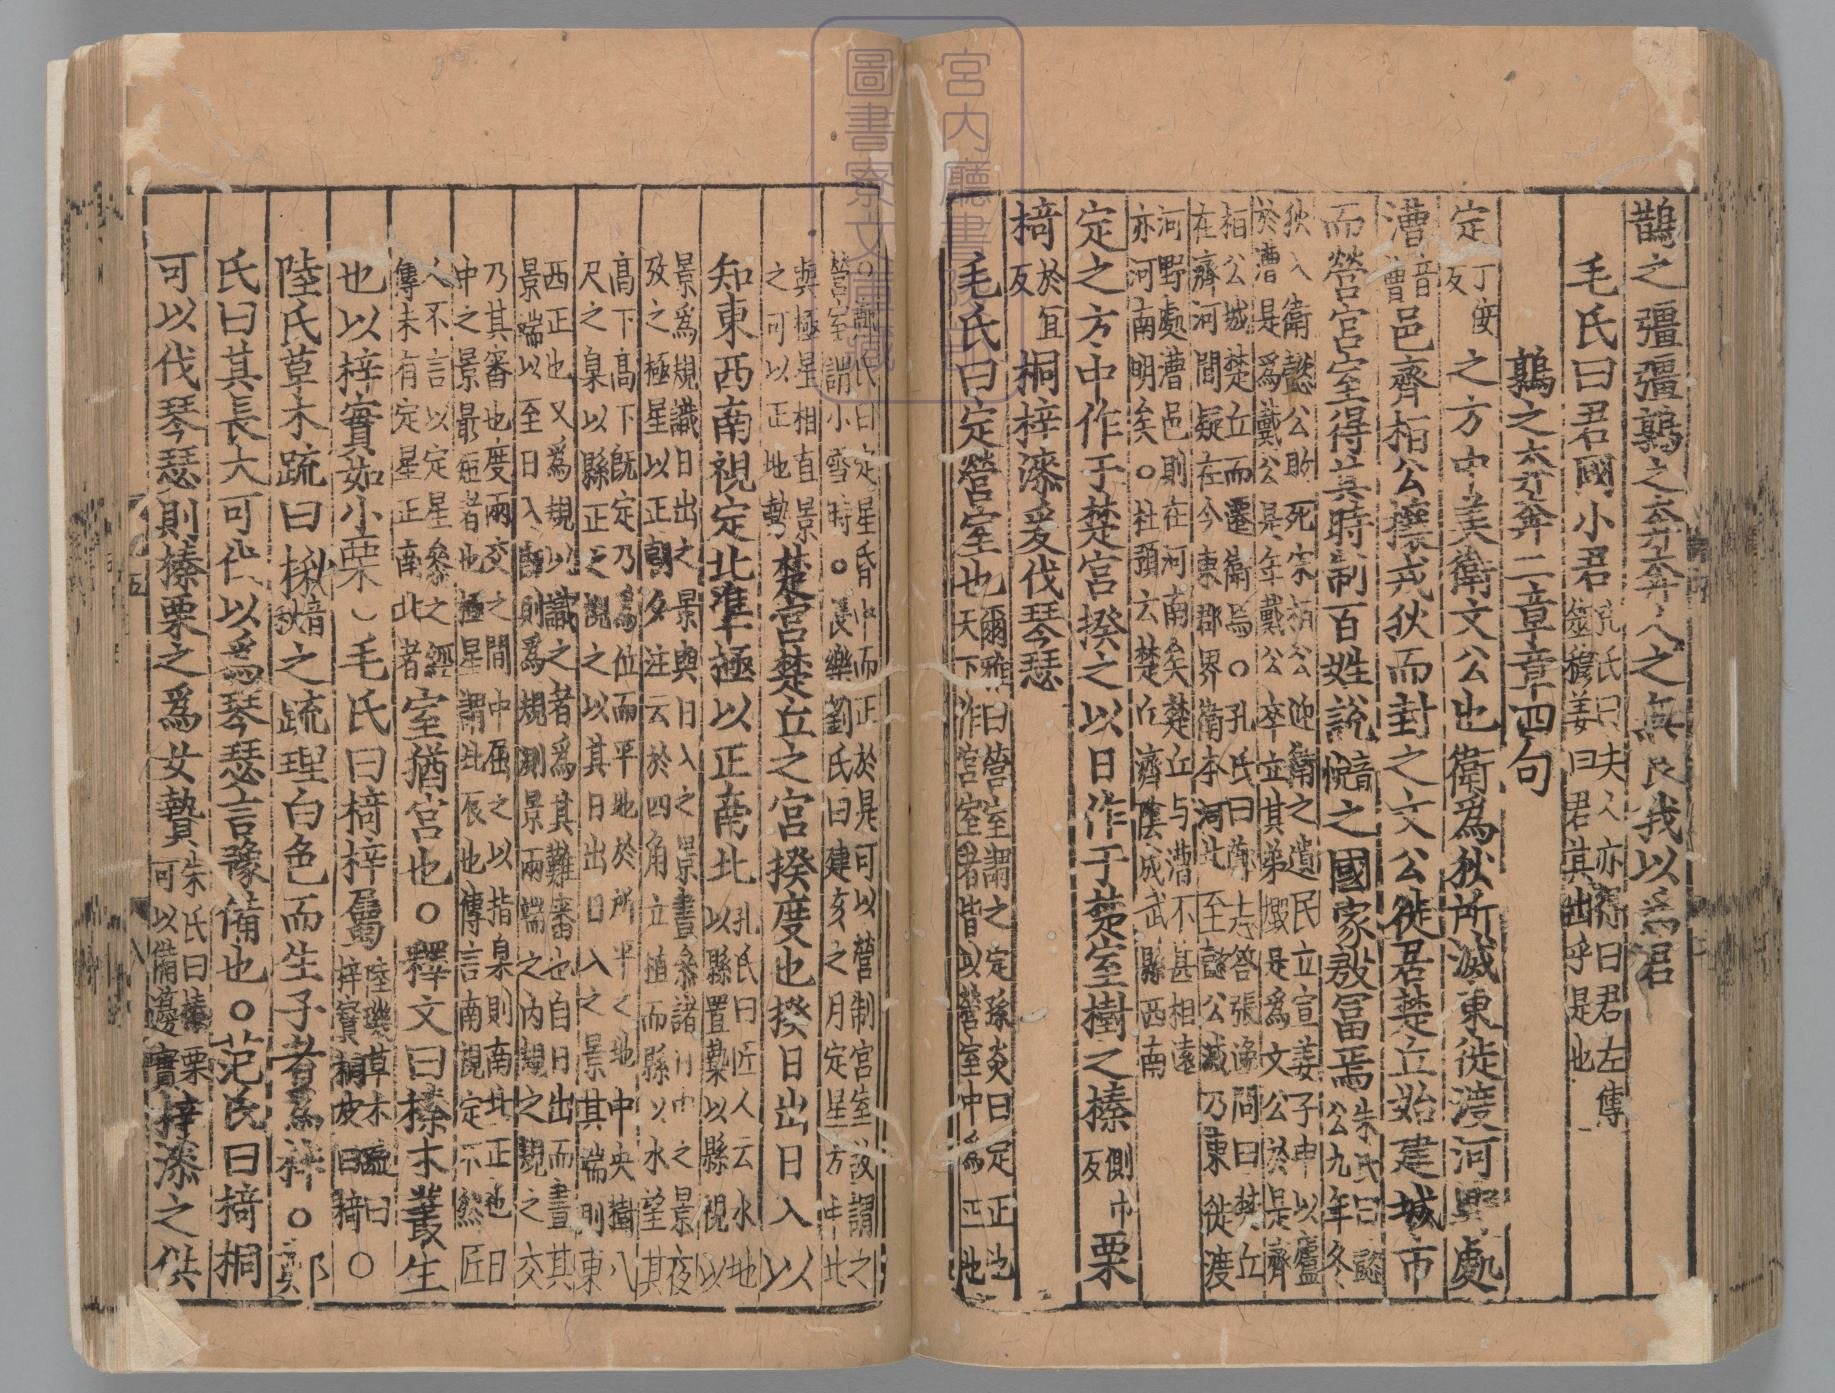 鵲之彊彊鶉之奔奔人之無良我以爲君
毛氏曰君國小君范氏曰夫人亦稱曰君左傳
筮穆姜曰君其出乎是也
鶉之奔奔二章章四句
定丁佞反之方中美衛文公也衛爲狄所滅東徙渡河野處
漕音曹邑齊桓公攘戎狄而封之文公徙居楚丘始建城市
而營宮室得其時制百姓說音悅之國家殷富焉朱氏曰懿
公九年冬
狄入衛懿公敗死宋桓公迎衛之遺民立宣姜子申以廬
於漕是爲戴公是年戴公卒立其弟燬是爲文公於是齊
桓公城楚丘而遷衛焉○孔氏曰鄭志答張逸問曰楚丘
在濟河間疑在今東郡界衛本河北至懿公滅乃東徙渡
河野處漕邑則在河南矣楚丘与漕不甚相遠
亦河南明矣○杜預云楚丘濟陰成武縣西南
定之方中作于楚宮揆之以日作于楚室樹之榛側巾反栗
椅於宜反桐梓漆爰伐琴瑟
毛氏曰定營室也爾雅曰營室謂之定孫炎曰定正也
天下作宮室者皆以營室中爲正也
○鄭氏曰定星昏中而正於是可以營制宮室故謂之
營室謂小雪時○長樂劉氏曰建亥之月定星方中北
與極星相直景
之可以正地勢楚宮楚丘之宮揆度也揆日出日入以
知東西南視定北準極以正南北孔氏曰匠人云水地
以縣置槷以縣視以
景爲規識日出之景與日入之景晝參諸日中之景夜
攷之極星以正朝夕注云於四角立植而縣以水望其
高下高下既定乃爲位而平地於所平之地中央樹八
尺之臬以縣正之視之以其景日出日入之景其端則東
西正也又爲規以識之者爲其難審也自日出而畫其
景端以至日入既則爲規測景兩端之內規之規之交
乃其審也度兩交之間中屈之以指臬則南北正也日
中之景最短者也極星謂北辰也傳言南視定不然匠
人不言以定星參之經
傳未有定星正南北者室猶宮也○釋文曰榛木叢生
也以梓實如小栗 毛氏曰椅梓屬陸璣草木疏曰
梓實桐皮曰椅○
陸氏草木疏曰楸音秋之疏理白色而生子者爲梓○
氏曰其長大可伐以爲琴瑟言豫備也○范氏曰椅桐
可以伐琴瑟則榛栗之爲女贄朱氏曰榛栗
可以備籩實梓漆之供
宮内廳書陵部
圖書寮文庫藏